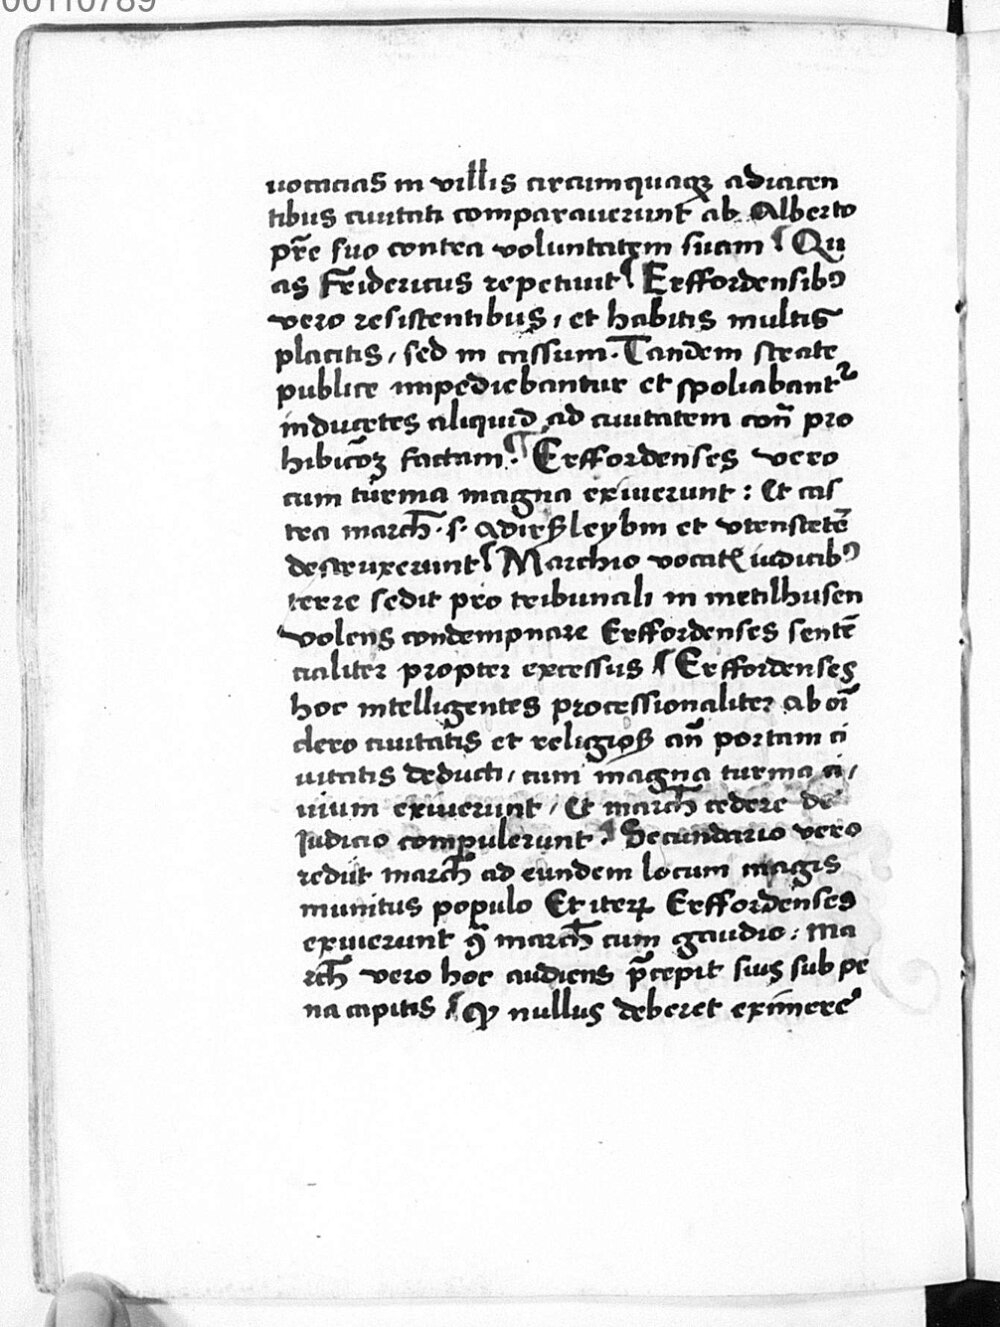 00110789
uocacias in villis circumquaqꝫ adiacen
tibus ciuitati comparauerunt ab Alberto
pr̄e suo contra voluntatem suam ¶ Qu
as Fridericus repetiuit ¶ Erffordensibꝰ
vero resistentibus, et habitis multis
placitis, sed in cassum. Tandem strate
publice impediebantur et spoliabantᷣ
inducētes aliquid ad ciuitatem con̄ pro
hibicōꝫ factam. ¶ Erffordenses vero
cum turma magna exiuerunt: Et cas
tra march̄. s. adirſleybin et vtenstetē
destruxerunt ¶ Marchio vocatꝭ iudicibꝰ
terre sedit pro tribunali in metilhusen
volens condempnare Erffordenses sentē
cialiter propter excessus ¶ Erffordenses
hoc intelligentes processionaliter ab oī
clero ciuitatis et religioꝝ an̄ portam ci
uitatis deducti, cum magna turma ci,
uium exiuerunt, Et march̄ cedere de
iudicio compulerunt. ¶ Secundario vero
rediit march̄ ad eundem locum magis
munitus populo Et iterꝝ Erffordenses
exiuerunt ꝯ̄ march̄ cum gaudio: Ma
rch̄ vero hoc audiens p̄cepit suis sub pe
na capitis ¶ Ꝙ nullus deberet eximere